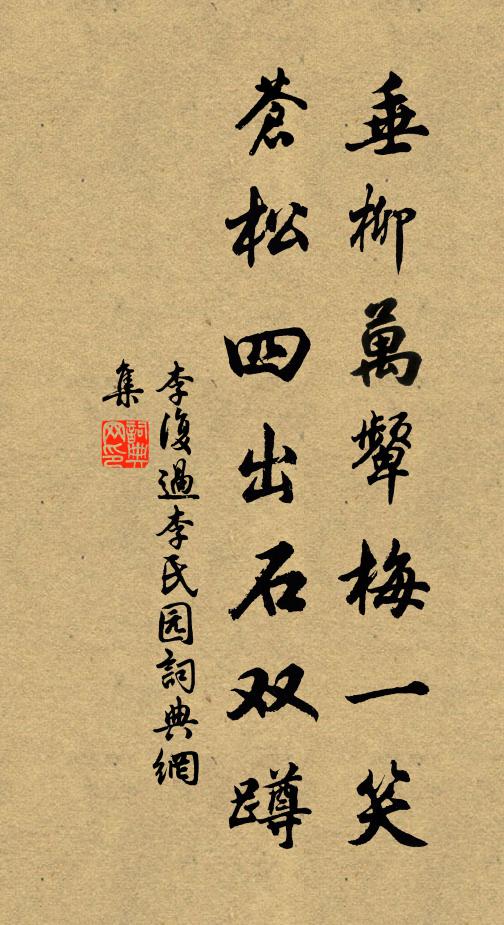 垂柳萬顰梅一笑
蒼松四出石双蹲
李復過李氏园詞典網
集
詞典網印